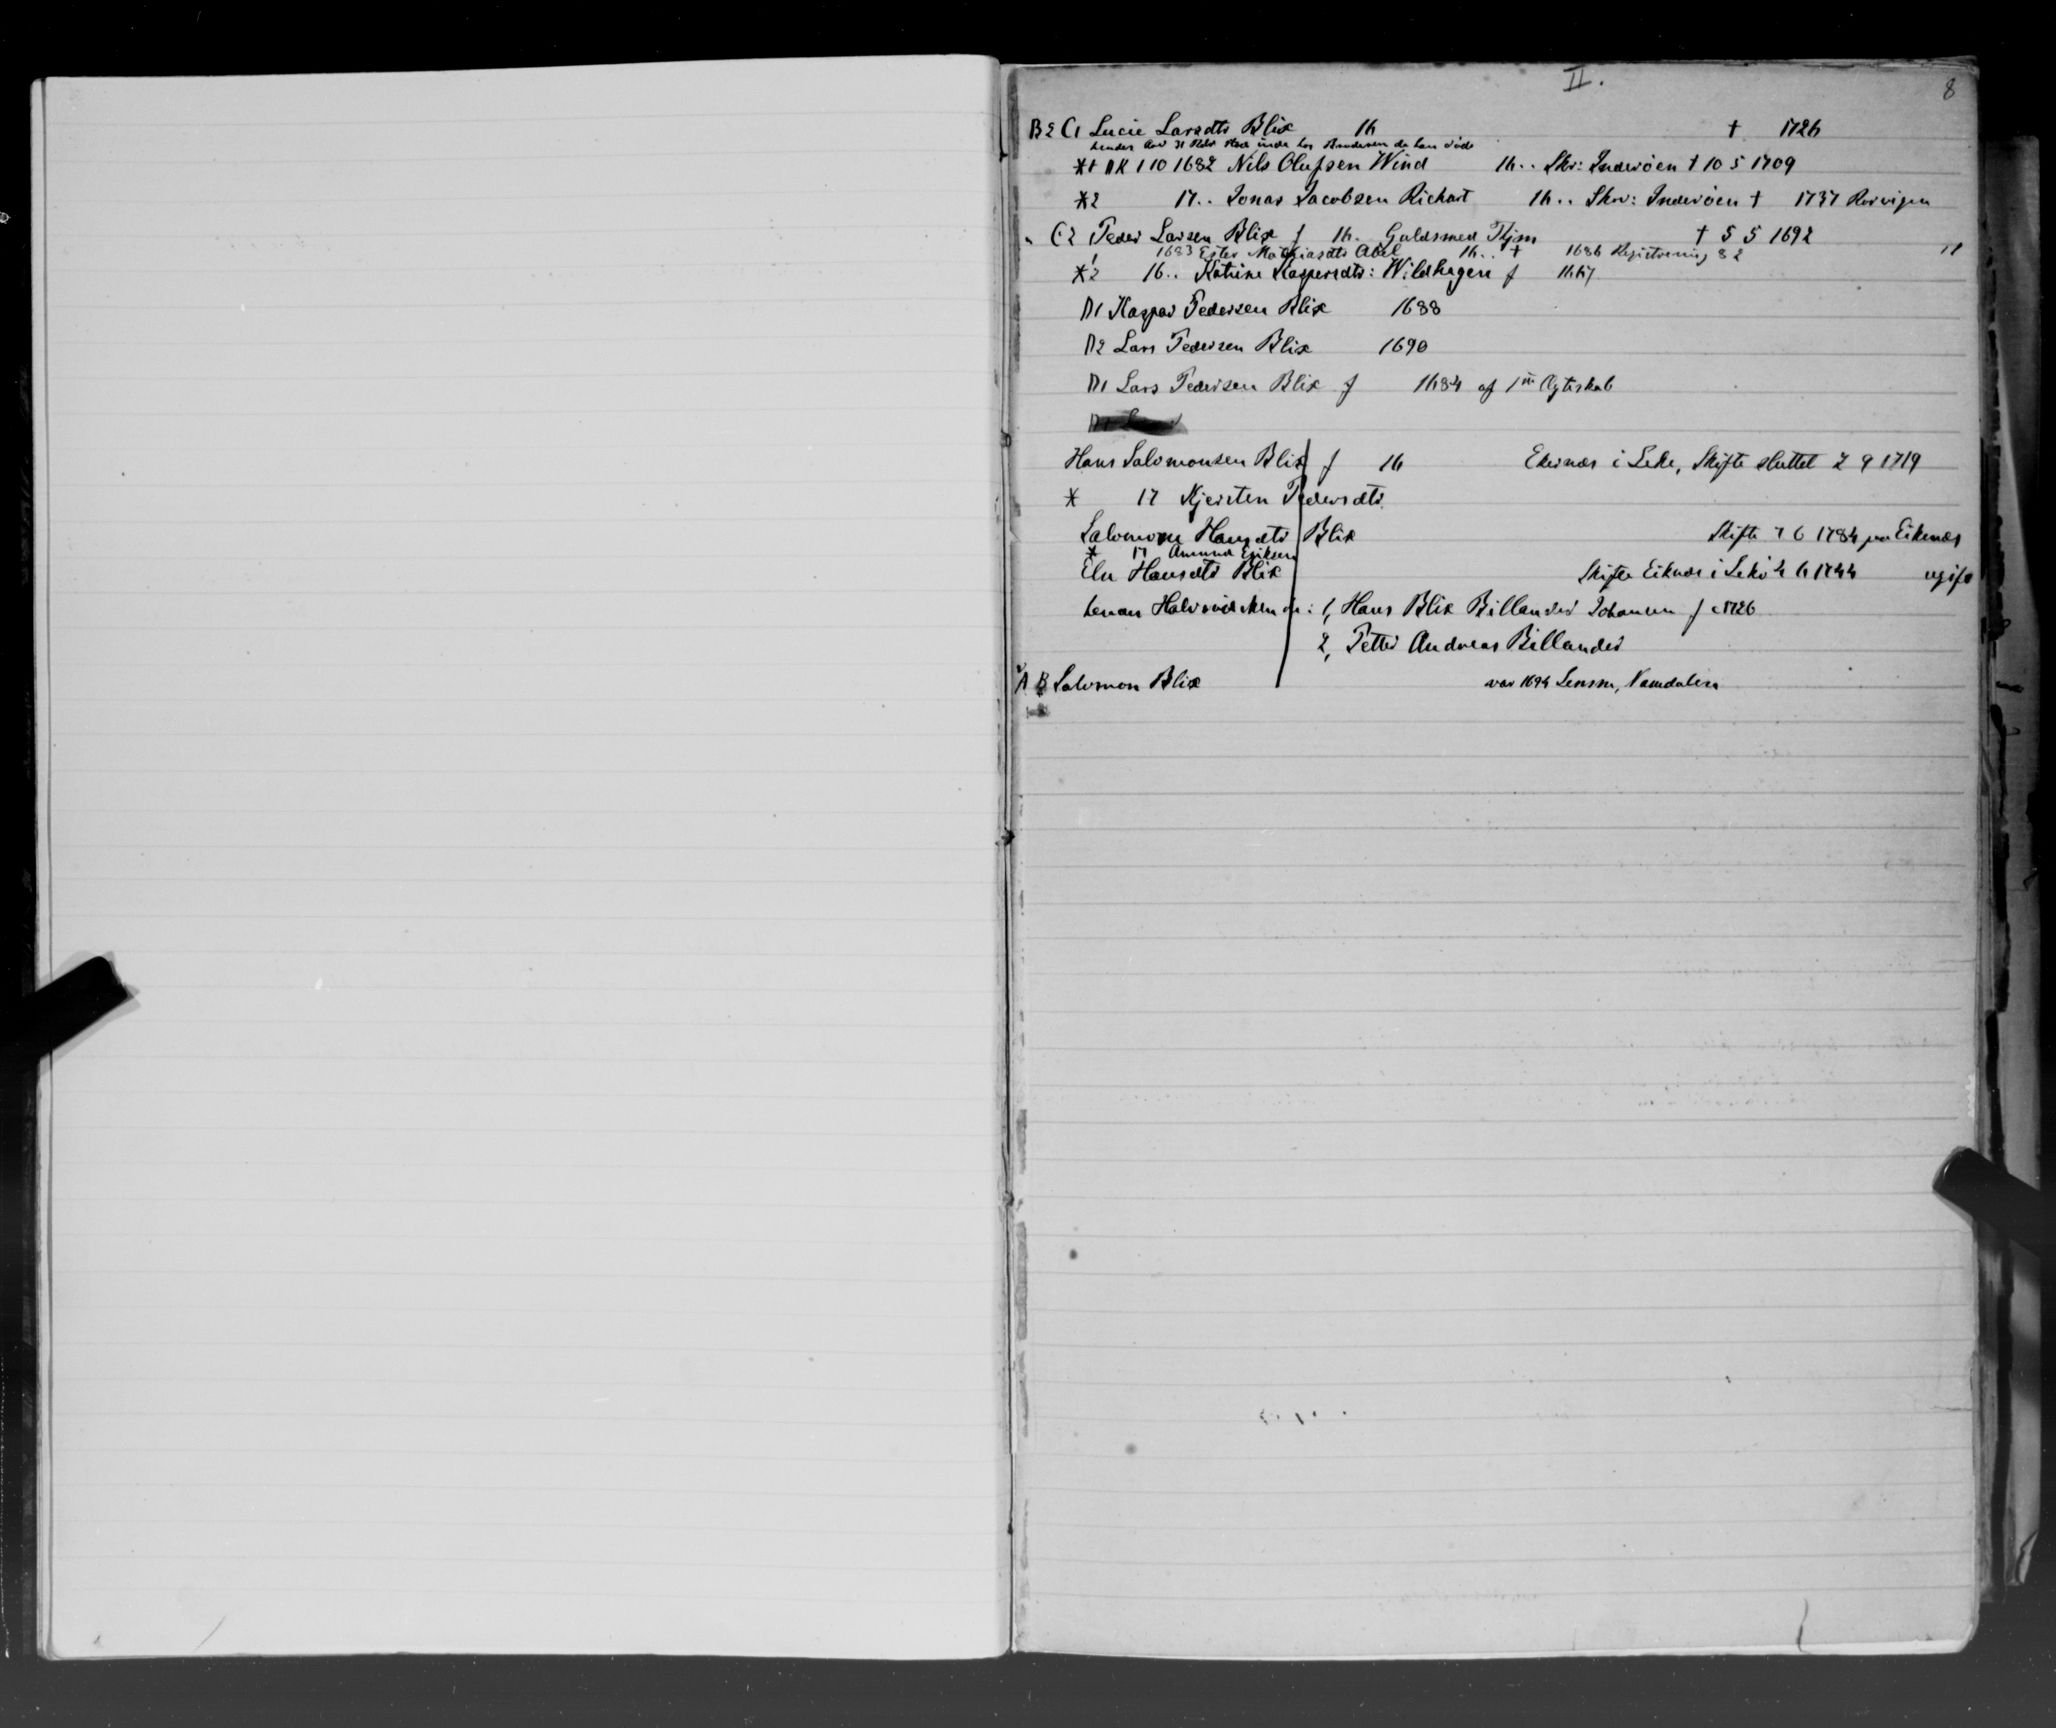 II.
8
B2 C1 Lucie Larsdtr Blix 16 † 1726
hendes Arv 31 Rdlr stod inde hos Broderen da han døde
*1 DK 1 10 1682 Nils Olufsen Wind 16.. Skr: Inderøen † 10 5 1709
*2 17.. Jonas Jacobsen Richart 16.. Skr: Inderøen † 1737 Rørvigen
" C2 Peder Larsen Blix f 16. Guldsmed Thjm † 5 5 1692
1 1683 Ester Mathiasdtr Abel 16.. † 1686 Registrering 8 2 11
*2 16.. Katrine Kaspersdtr: Wildhagen f 1667
D1 Kaspar Pedersen Blix 1688
D2 Lars Pedersen Blix 1690
D1 Lars Pedersen Blix f 1684 af 1ste Ægteskab
Hans Salomonsen Blix f 16 Ekernæs i Leke, Skifte sluttet 2 9 1719
* 17 Kjersten Pedersdtr
Salomone Hansdtr Blix Skifte 7 6 1784 paa Eikenæs
* 17 Amund Eriksen
Elen Hansdtr Blix Skifte Eiknæs i Lekø 4 6 1744 ugift
hendes Halvsødskende: 1, Hans Blix Billander Johansen f c1726
2, Petter Andreas Billander
A B Salomon Blix var 1694 Lensm, Namdalen